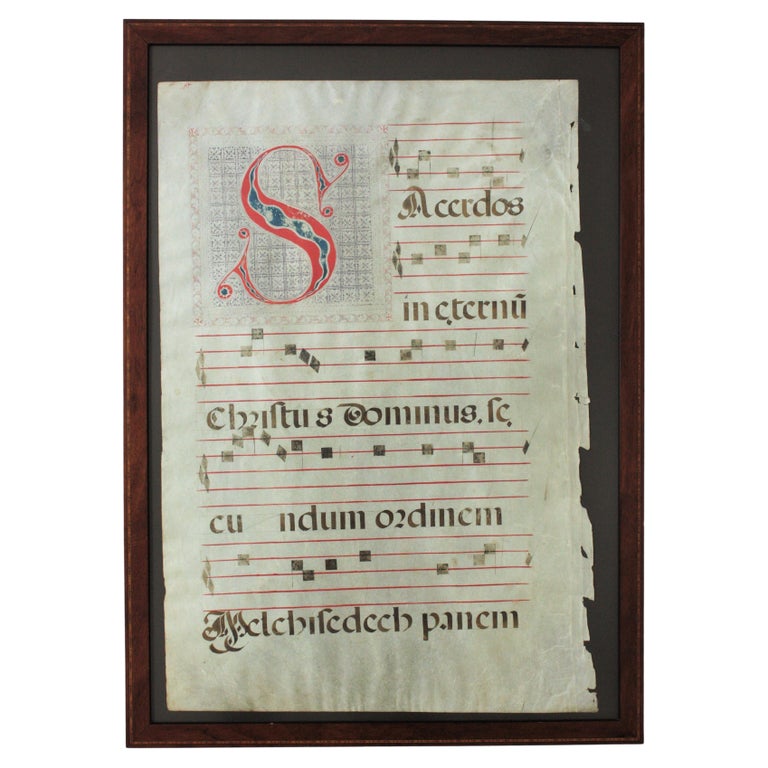 SAcerdos
in ęternū
Christus Dominus, sę
cu ndum ordinem
Melchisedech panem